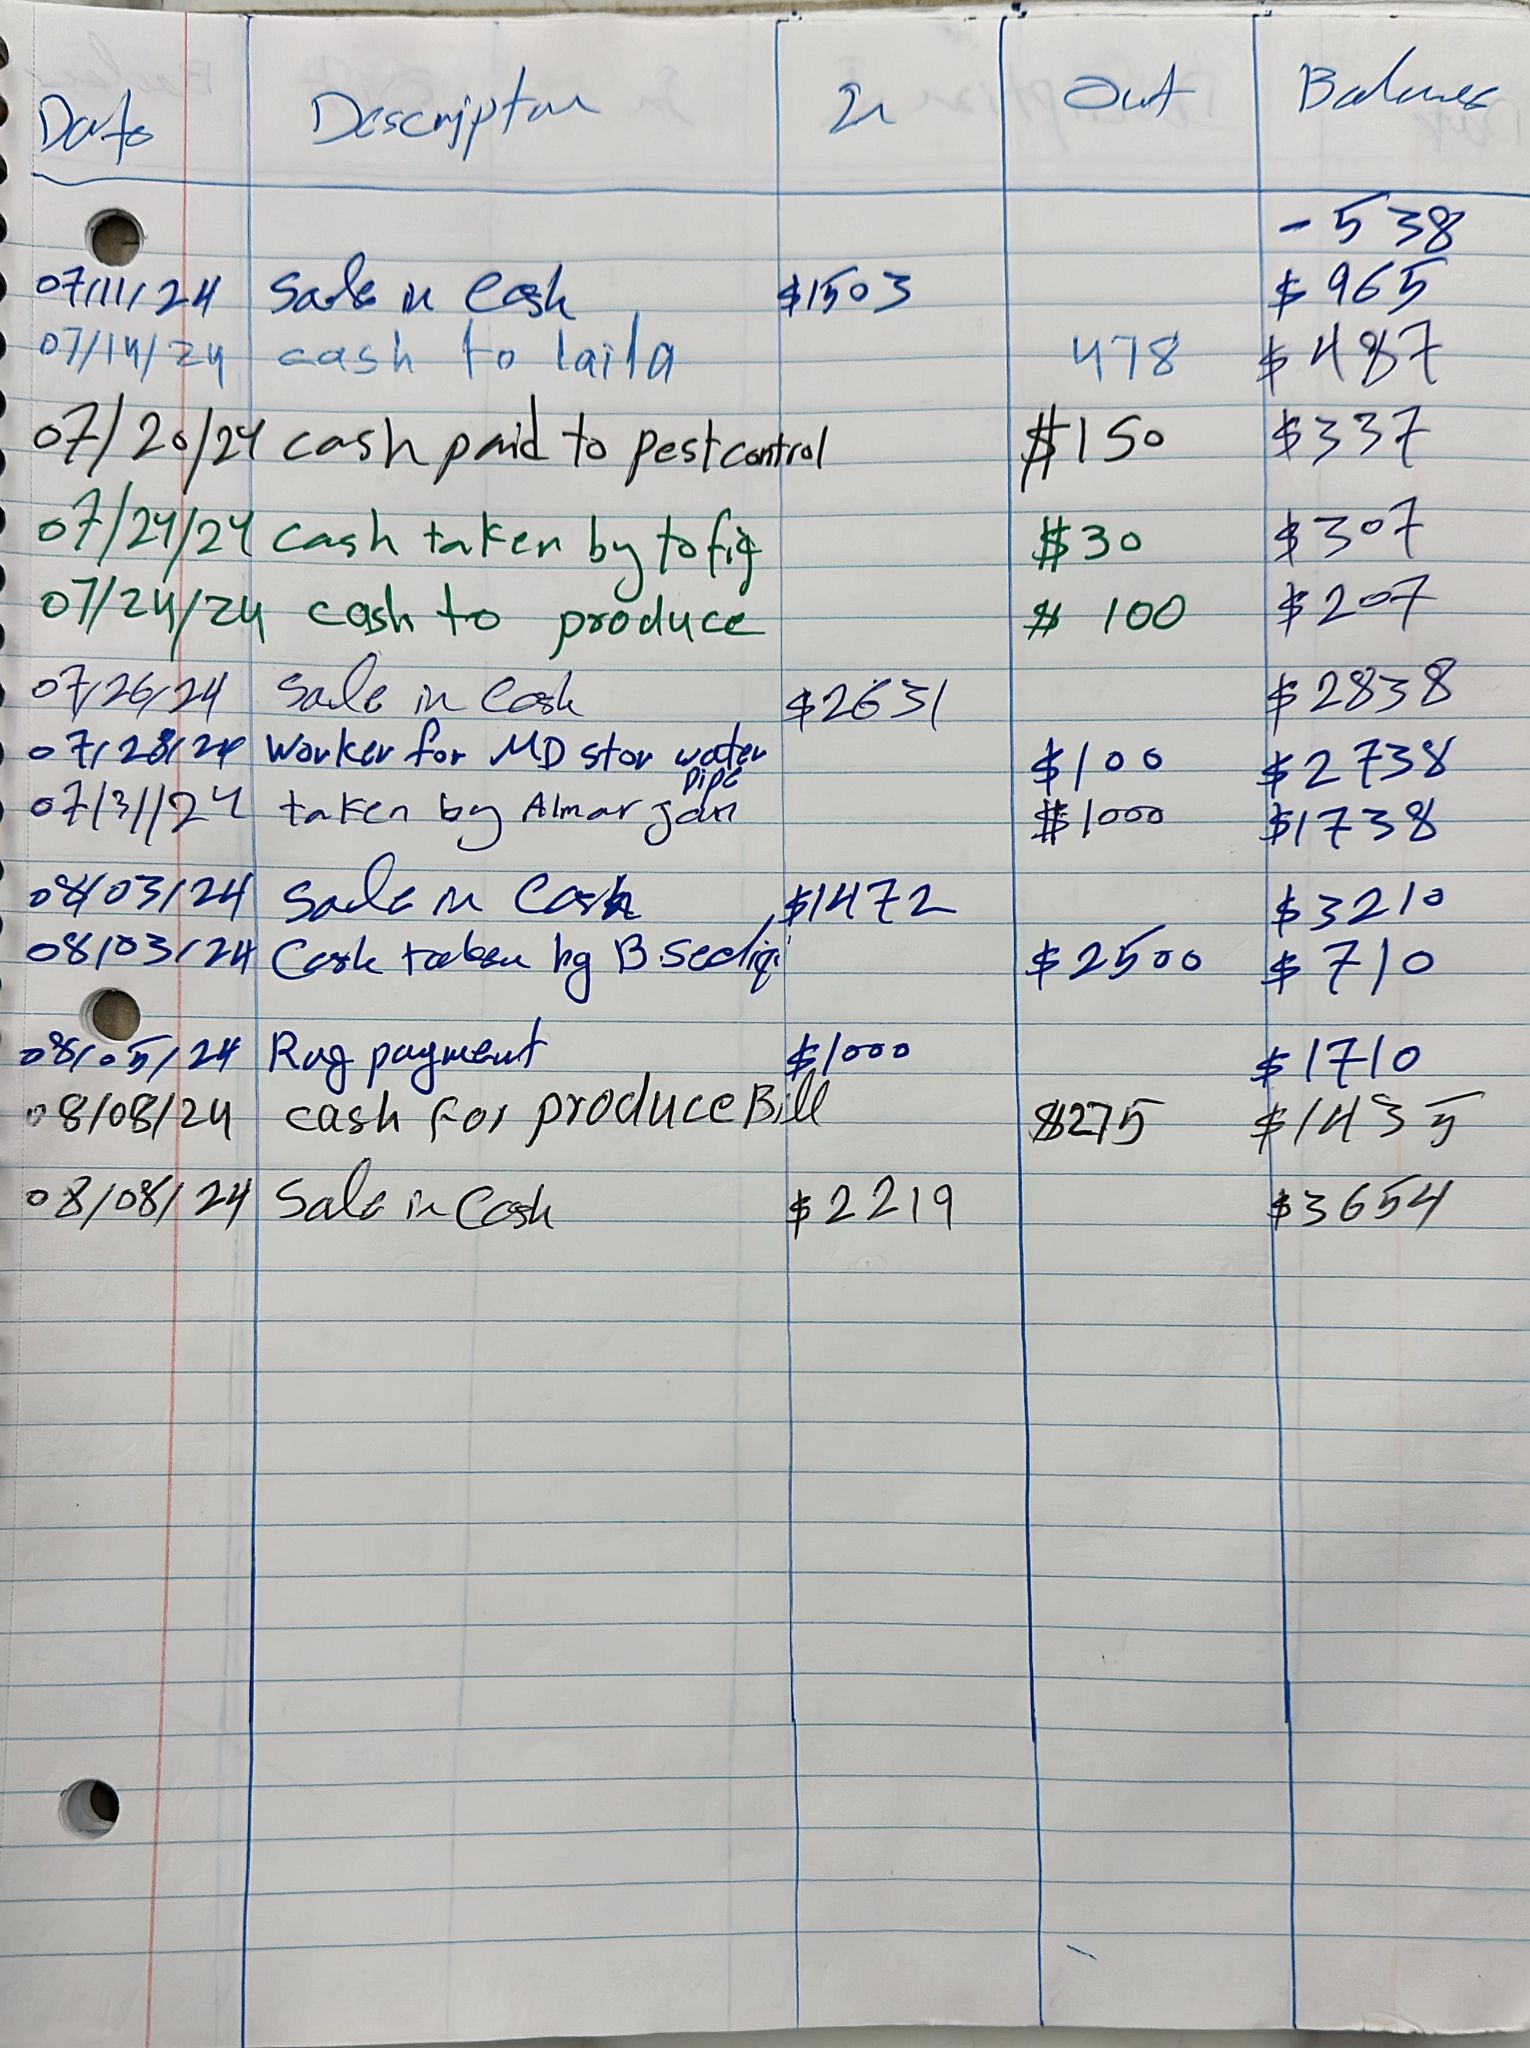 Date Description In Out Balance
-538
07/11/24 Sale in Cash $1503 $965
07/14/24 cash to laila 478 $487
07/20/24 cash paid to pest control $150 $337
07/24/24 cash taken by tofiq $30 $307
07/24/24 cash to produce $100 $207
07/26/24 Sale in Cash $2631 $2838
07/28/24 Worker for MD stor water pipe $100 $2738
07/31/24 taken by Almar jan $1000 $1738
08/03/24 Sale in Cash $1472 $3210
08/03/24 Cash taken by B.Sediqi $2500 $710
08/05/24 Rug payment $1000 $1710
08/08/24 cash for produce Bill $275 $1435
08/08/24 Sale in Cash $2219 $3654